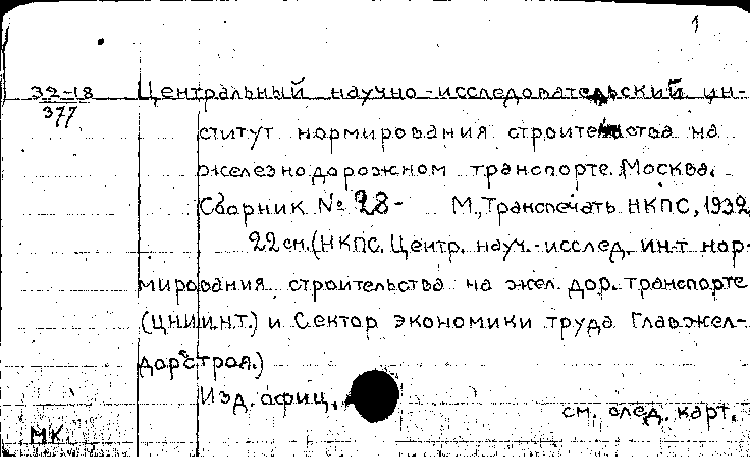 1
32-18 Центральный научно-исследовательский ин-
377 ститут нормирования строительства на
железнодорожном транспорте. Москва.
Сборник № 28- М., Транспечать НКПС, 1932,
22 см. (НКПС. Центр. науч.-исслед. ин-т нор-
мирования строительства на жел. дор. транспорте
(ЦНИИ.Н.Т.) и Сектор экономики труда Главжел-
дорстроя.)
Изд. офиц.
см. след. карт.
МК